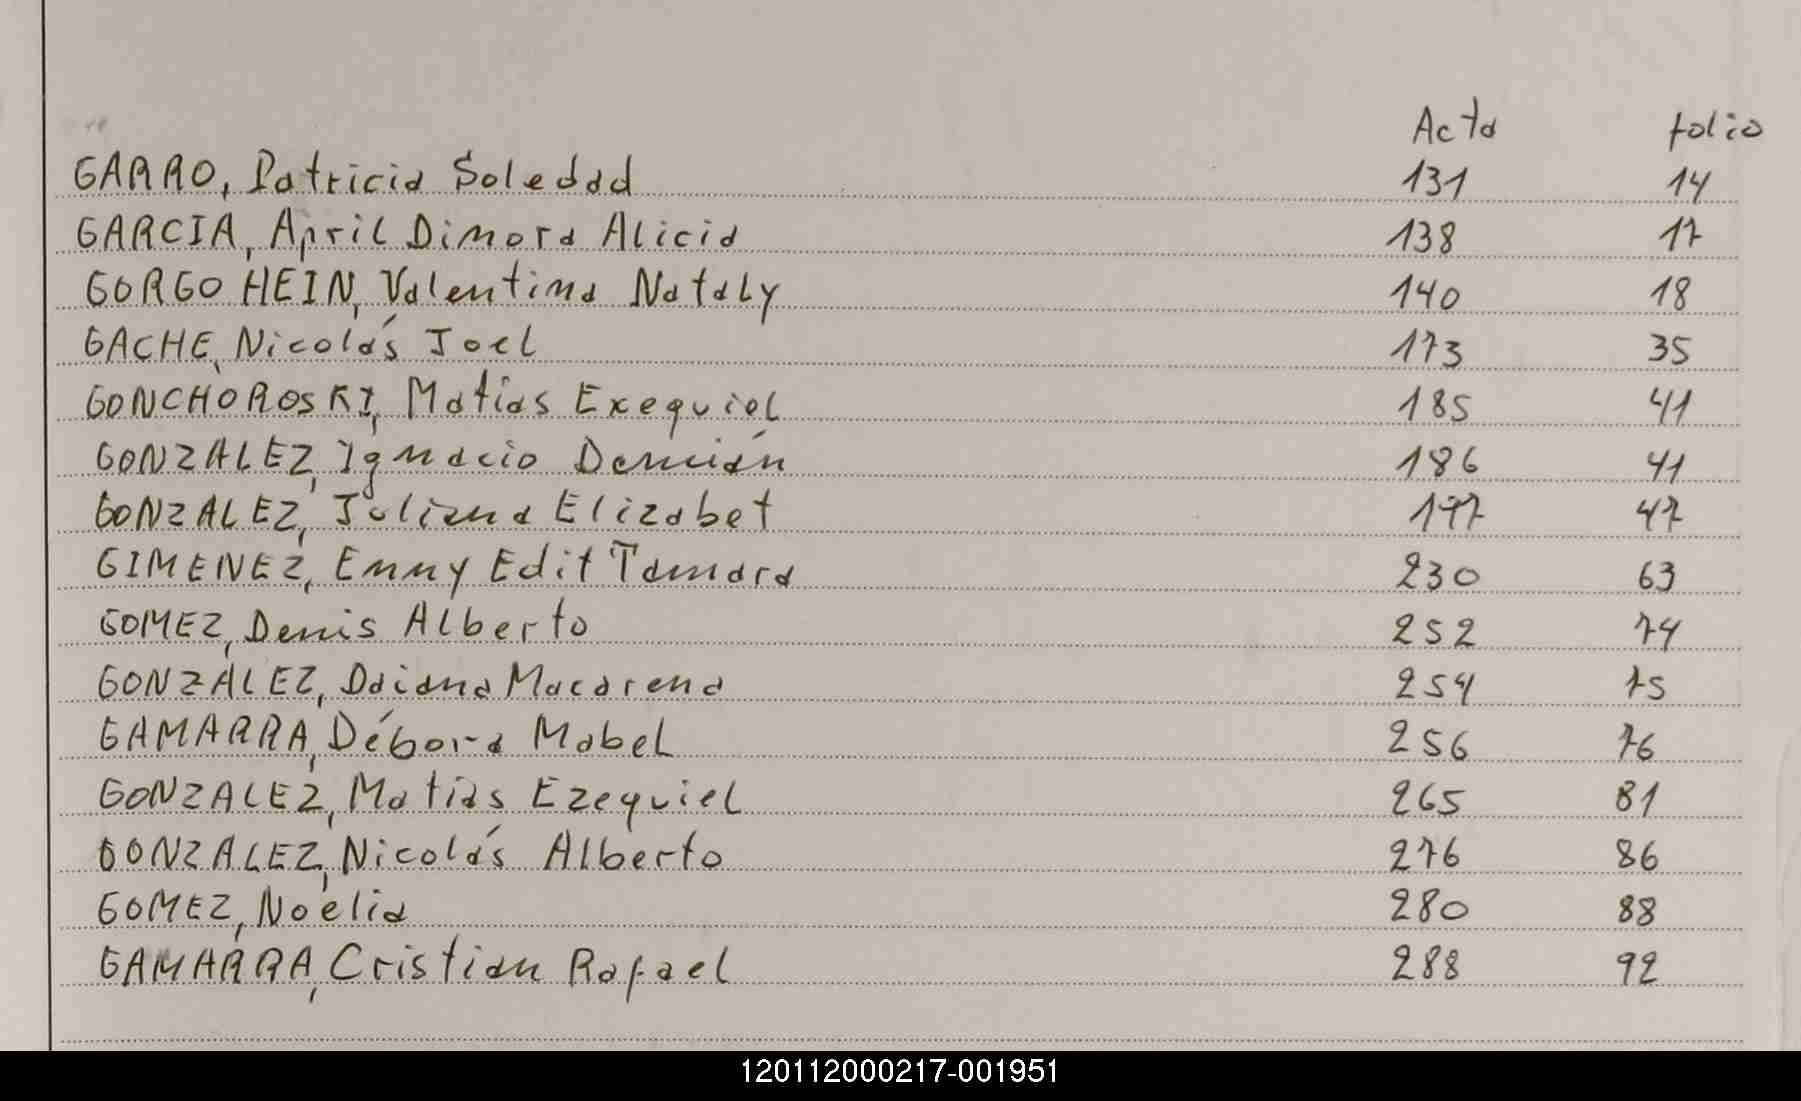 Acta folio
GARRO, Patricia Soledad 131 14
GARCIA, April Dimora Alicia 138 17
GORGO HEIN, Valentina Nataly 140 18
GACHE, Nicolás Joel 173 35
GONCHOROSKI, Matias Exequiel 185 41
GONZALEZ, Ignacio Demián 186 41
GONZALEZ, Juliana Elizabet 197 47
GIMENEZ, Emmy Edit Tamara 230 63
GOMEZ, Denis Alberto 252 74
GONZALEZ, Daiana Macarena 254 75
GAMARRA, Débora Mabel 256 76
GONZALEZ, Matias Ezequiel 265 81
GONZALEZ, Nicolás Alberto 276 86
GOMEZ, Noelia 280 88
GAMARRA, Cristian Rafael 288 92
120112000217-001951